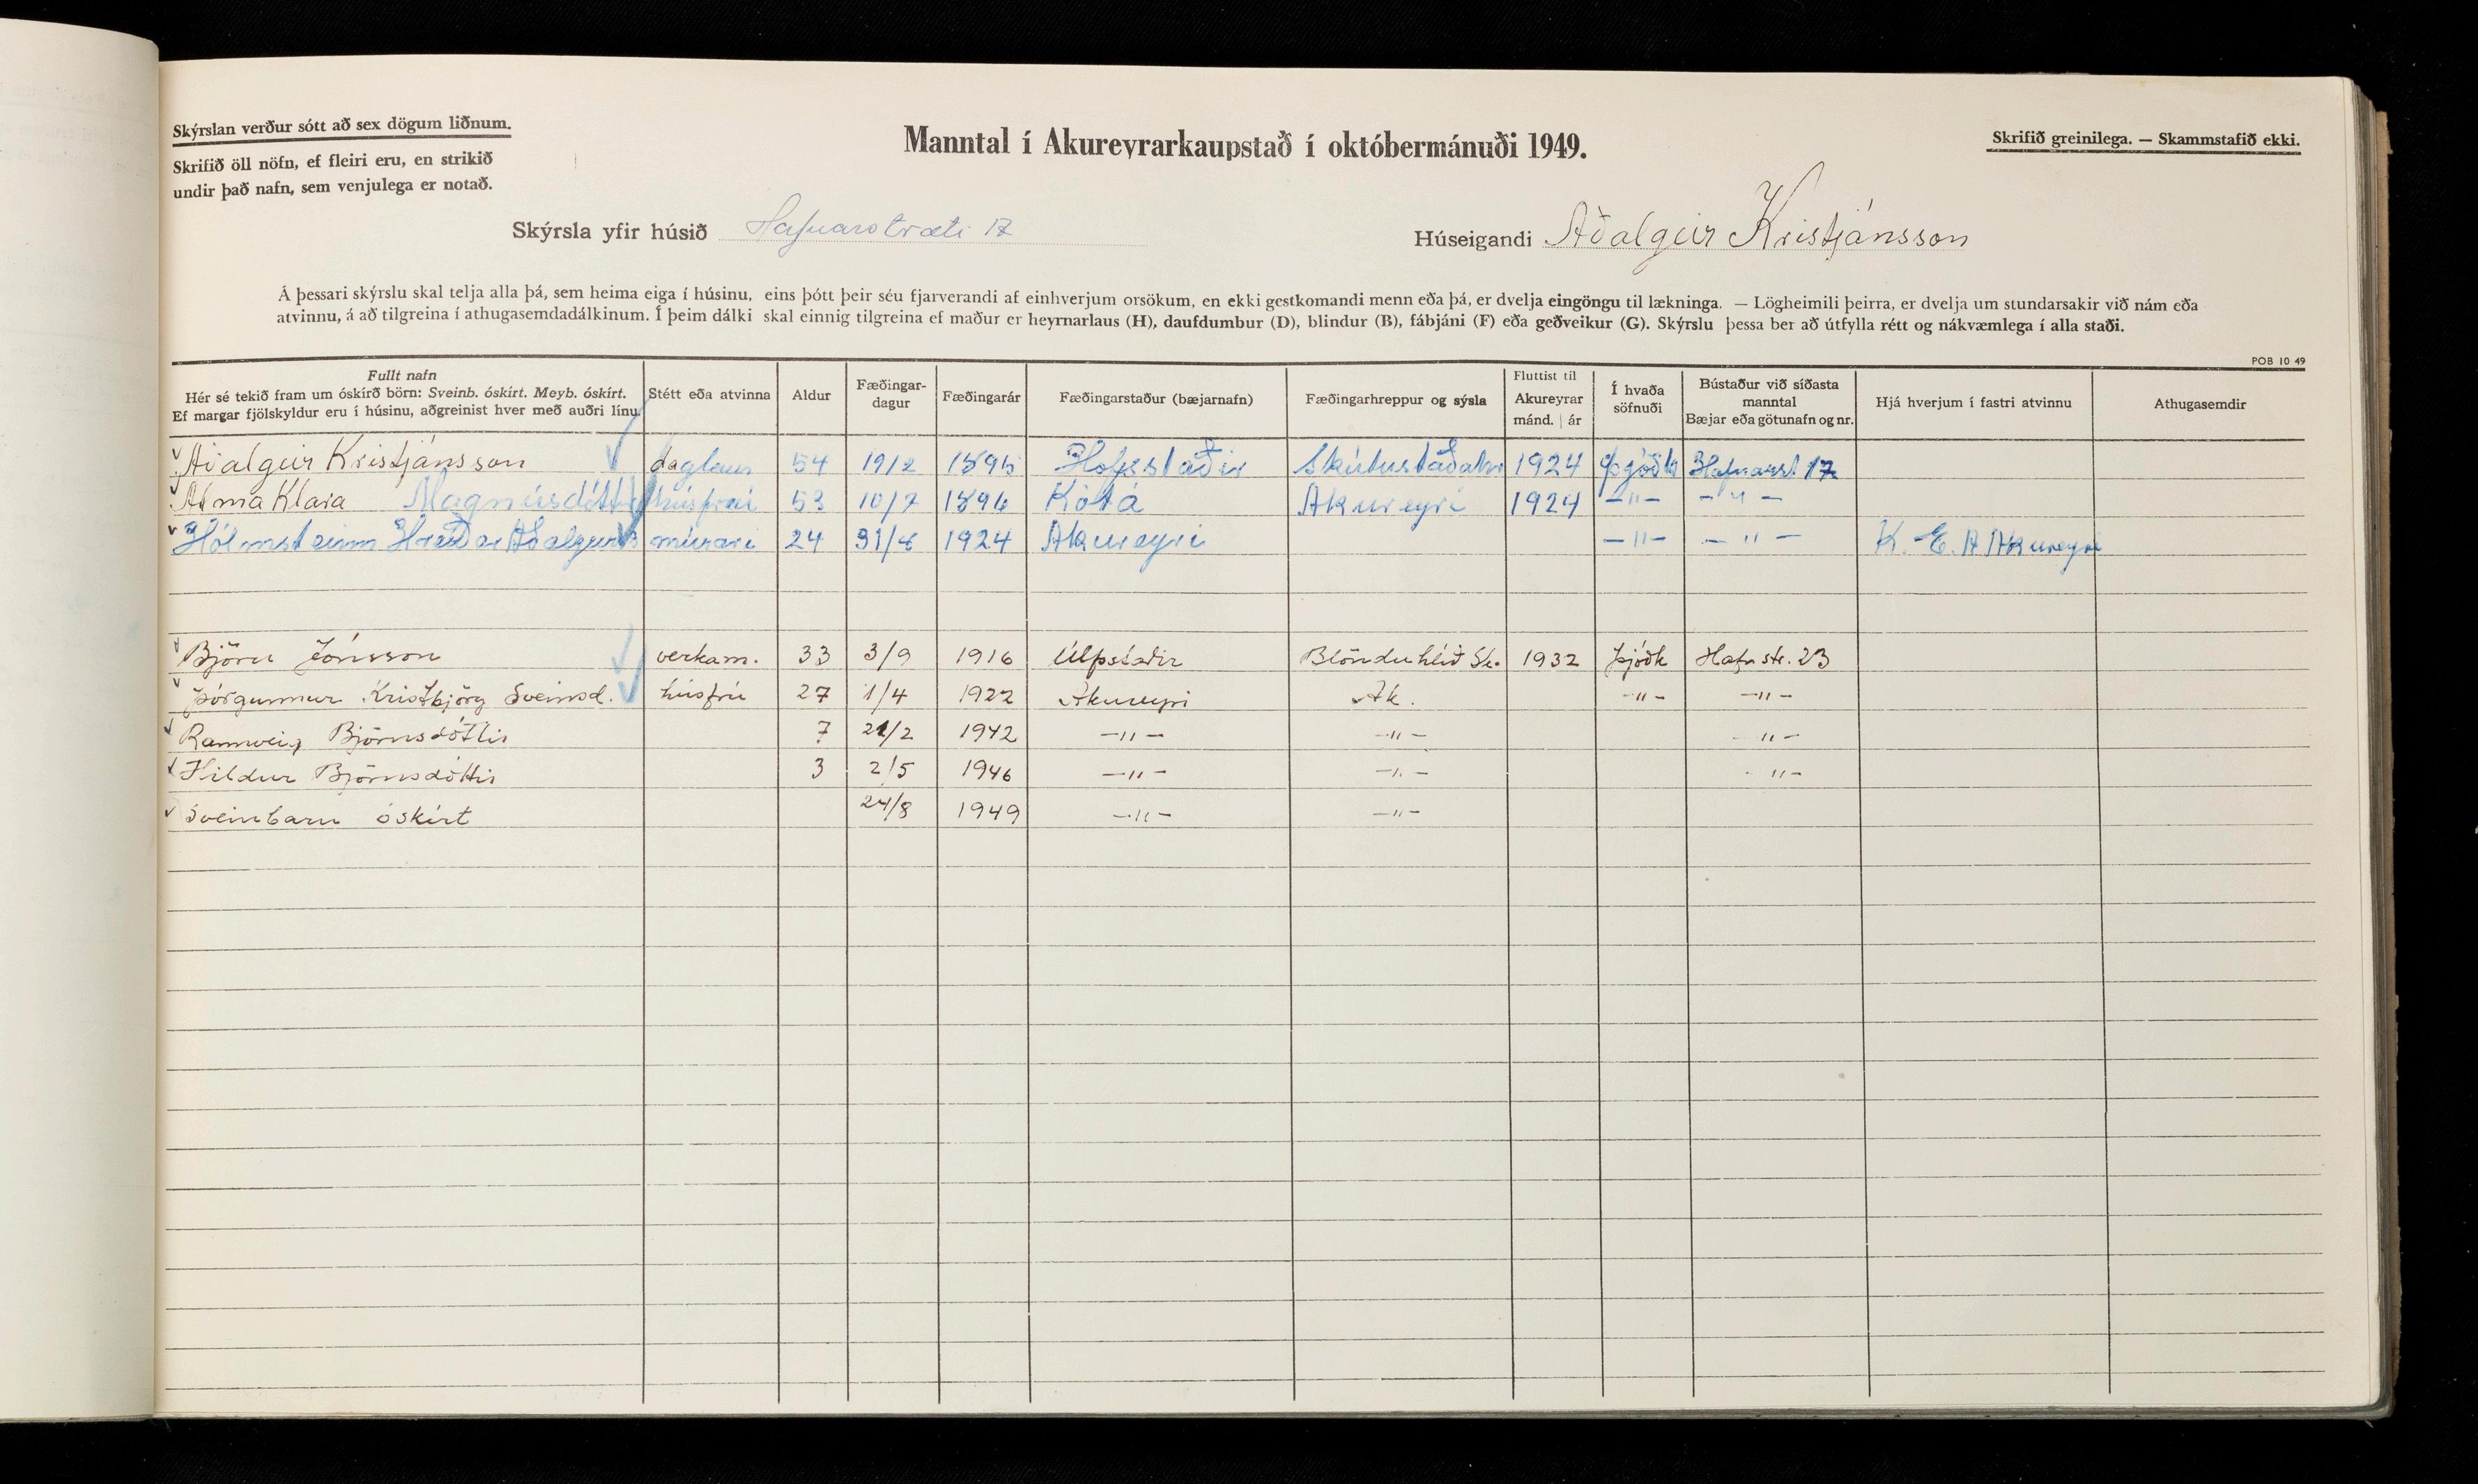 Skýrslan verður sótt að sex dögum liðnum.
Skrifið öll nöfn, ef fleiri eru, en strikið
undir það nafn, sem venjulega er notað.
Manntal í Akureyrarkaupstað í októbermánuði 1949.
Skrifið greinilega. — Skammstafið ekki.
Skýrsla yfir húsið Hafnarstræti 17
Húseigandi Aðalgeir Kristjánsson
Á þessari skýrslu skal telja alla þá, sem heima eiga í húsinu, eins þótt þeir séu fjarverandi af einhverjum orsökum, en ekki gestkomandi menn eða þá, er dvelja eingöngu til lækninga. — Lögheimili þeirra, er dvelja um stundarsakir við nám eða
atvinnu, á að tilgreina í athugasemdadálkinum. Í þeim dálki skal einnig tilgreina ef maður er heyrnarlaus (H), daufdumbur (D), blindur (B), fábjáni (F) eða geðveikur (G). Skýrslu þessa ber að útfylla rétt og nákvæmlega í alla staði.
POB 10 49
Fullt nafn
Hér sé tekið fram um óskírð börn: Sveinb. óskírt. Meyb. óskírt.
Ef margar fjölskyldur eru í húsinu, aðgreinist hver með auðri línu.
Stétt eða atvinna
Aldur
Fæðingar-
dagur
Fæðingarár
Fæðingarstaður (bæjarnafn)
Fæðingarhreppur og sýsla
Fluttist til
Akureyrar
mánd. | ár
Í hvaða
söfnuði
Bústaður við síðasta
manntal
Bæjar eða götunafn og nr.
Hjá hverjum í fastri atvinnu
Athugasemdir
Aðalgeir Kristjánsson 54 19/2 1895 Hofsstaðir 1924 Hafnarst 17
Alma Klara Magnúsdótti húsfrú 53 10/7 1896 Kótá Akureyri 1924 -"- -"-
Hólmsteinn Hreiðar múrari 24 1924 Akureyri -"- -"- K. E. A Akureyri
Björn Jónsson verkam. 33 3/9 1916 Úlfsstaðir Blönduhlíð Sk. 1932 Þjóðk Hafnstr. 23
Þórgunnur Kristbjörg Sveinsd. húsfrú 27 1/4 1922 Akureyri Ak. -"- -"-
Rannveig Björnsdóttir 7 21/2 1942 -"- -"- -"-
Hildur Björnsdóttir 3 2/5 1946 -"- -"- -"-
Sveinbarn óskírt 24/8 1949 -"- -"-